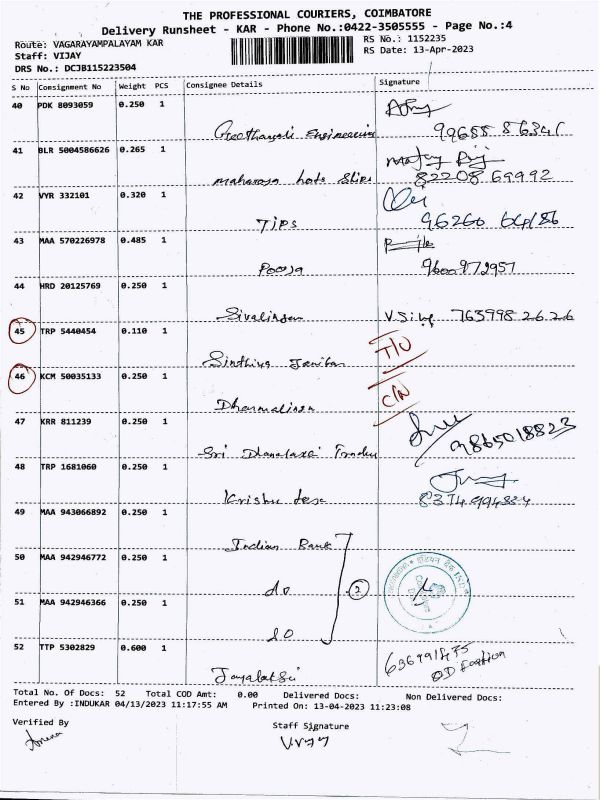 THE PROFESSIONAL COURIERS, COIMBATORE
Delivery Runsheet - KAR - Phone No.:0422-3505555 - Page No.:4
Route: VAGARAYAMPALAYAM KAR
RS No.: 1152235
Staff: VIJAY
RS Date: 13-Apr-2023
DRS No.: DCJB115223504
S No Consignment No Weight PCS Consignee Details Signature
40 PDK 8093059 0.250 1
Geethanjali Engineering 99655 86341
41 BLR 5004586626 0.265 1
maharaja hots Slips 82208 69992
42 VYR 332101 0.320 1
TIPS 96260
43 MAA 570226978 0.485 1
Pooja 9600972957
44 HRD 20125769 0.250 1
Sivalingam 763998 2626
45 TRP 5440454 0.110 1
Sinthiya
46 KCM 50035133 0.250 1
Dharmalingam C/N
47 KRR 811239 0.250 1
Sri 9865018823
48 TRP 1681060 0.250 1
Krishu 8374994334
49 MAA 943066892 0.250 1
Indian Bank
50 MAA 942946772 0.250 1
do 2
51 MAA 942946366 0.250 1
do
52 TTP 5302829 0.600 1
Total No. Of Docs: 52 Total COD Amt: 0.00 Delivered Docs: Non Delivered Docs:
Entered By :INDUKAR 04/13/2023 11:17:55 AM Printed On: 13-04-2023 11:23:08
Verified By
Staff Signature
Vijay